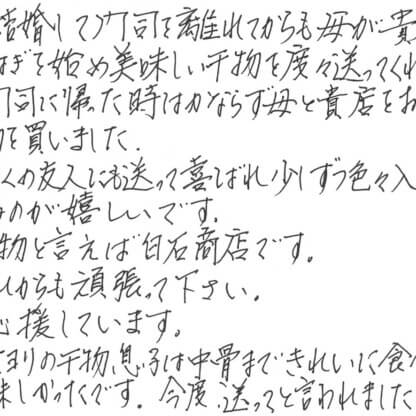 結婚して門司を離れてからも母が貴
はぎを始め美味しい干物を度々送ってくれ
門司に帰った時はかならず母と貴店をお
を買いました.
くの友人にも送って喜ばれ少しずつ色々入
のが嬉しいです.
物と言えば白石商店です.
れからも頑張って下さい.
応援しています.
まりの干物,息子は中骨まできれいに食べ
味しかったです.今度,送ってと言われました